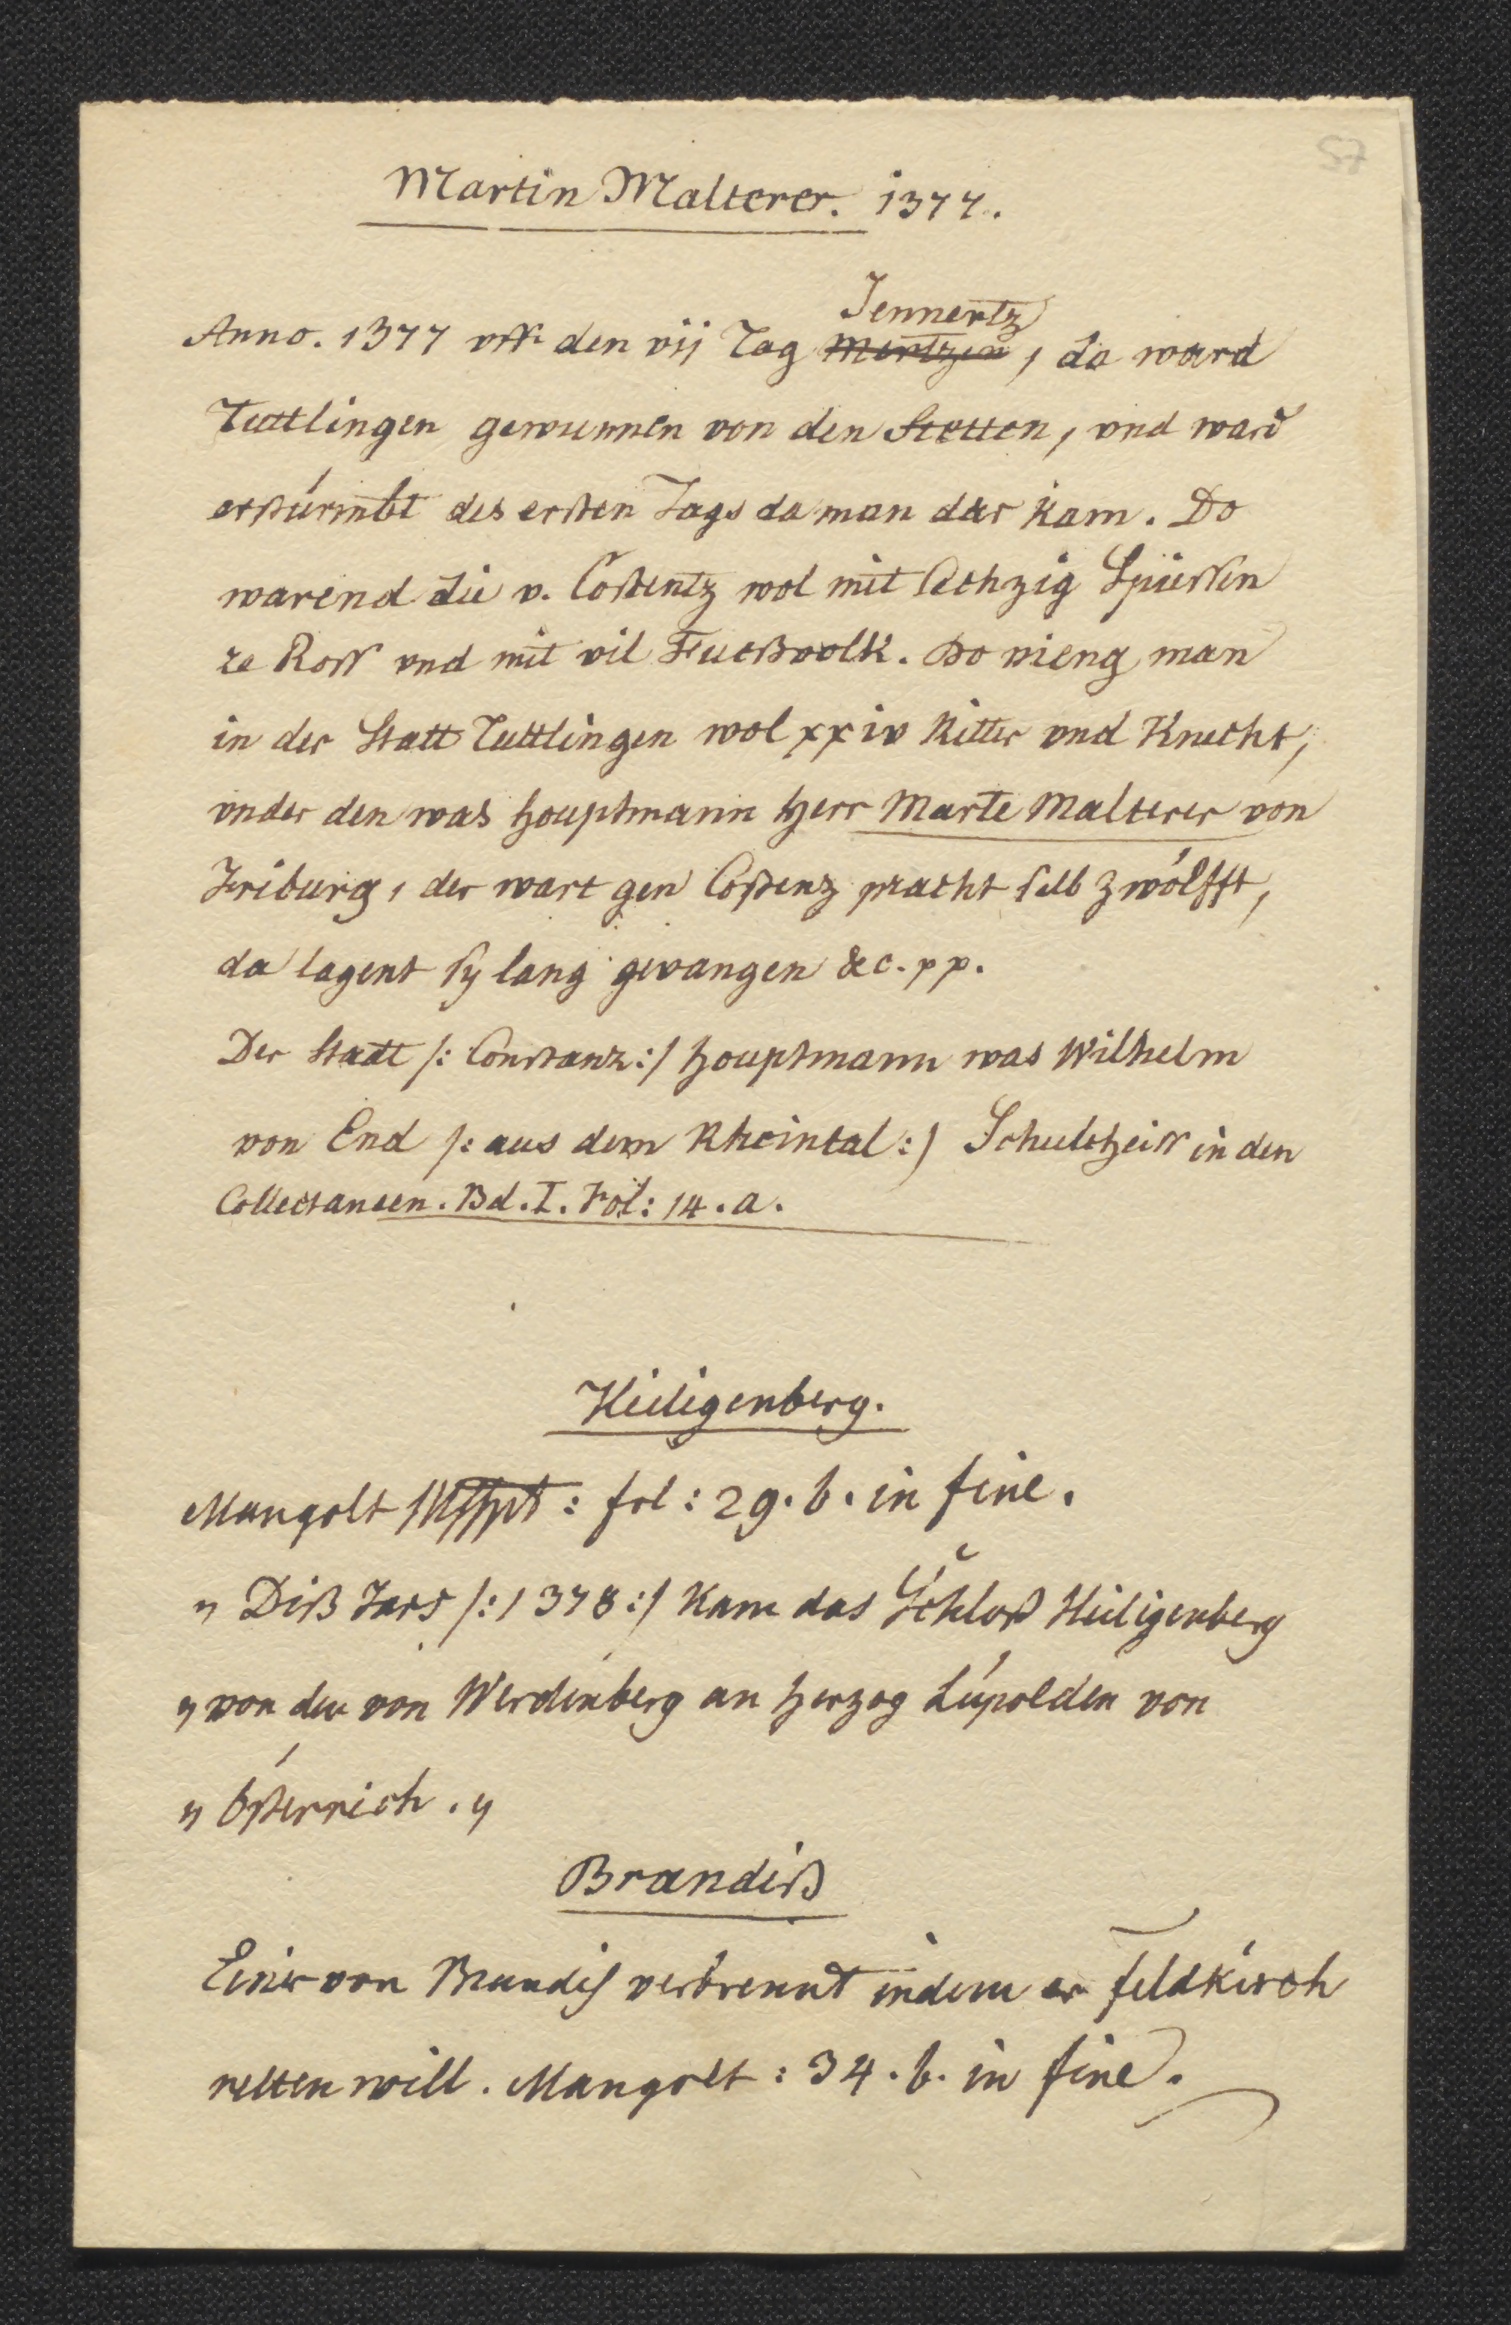 57
Martin Malterer. 1377.
Jennertz
Anno. 1377 vff den vij Tag Mertzen, da ward
Tuttlingen gewunnen von den Stetten, vnd ward
erstúrmbt des ersten Tags da man dar kam. Do
warend die v. Costentz wol mit sechzig Spiessen
ze Ross vnd mit vil Fueßvolk. Do vieng man
in der Statt Tuttlingen wol xxiv Ritter vnd Knecht,
vnder den was houptmann Herr Marte Malterer von
Friburg, der wart gen Costenz pracht selb zwólfft,
da lagent sy lang gevangen &c. pp.
Der Statt /: Constanz :/ houptmann was Wilhelm
von End /: aus dem Rheintal :/ Schultheiss in den
Collectaneen. Bd. I. Fol: 14. a.
Heiligenberg.
Mangolt Msspt : fol : 29. b. in fine.
„ Diß Jars /: 1378 :/ kam das Schloß Heiligenberg
„ von den von Werdenberg an herzog Lúpolden von
„ Ósterrich . „
Brandiß
Einer von Brandis verbrennt indem er Feldkirch
retten will. Mangolt : 34. b. in fine.